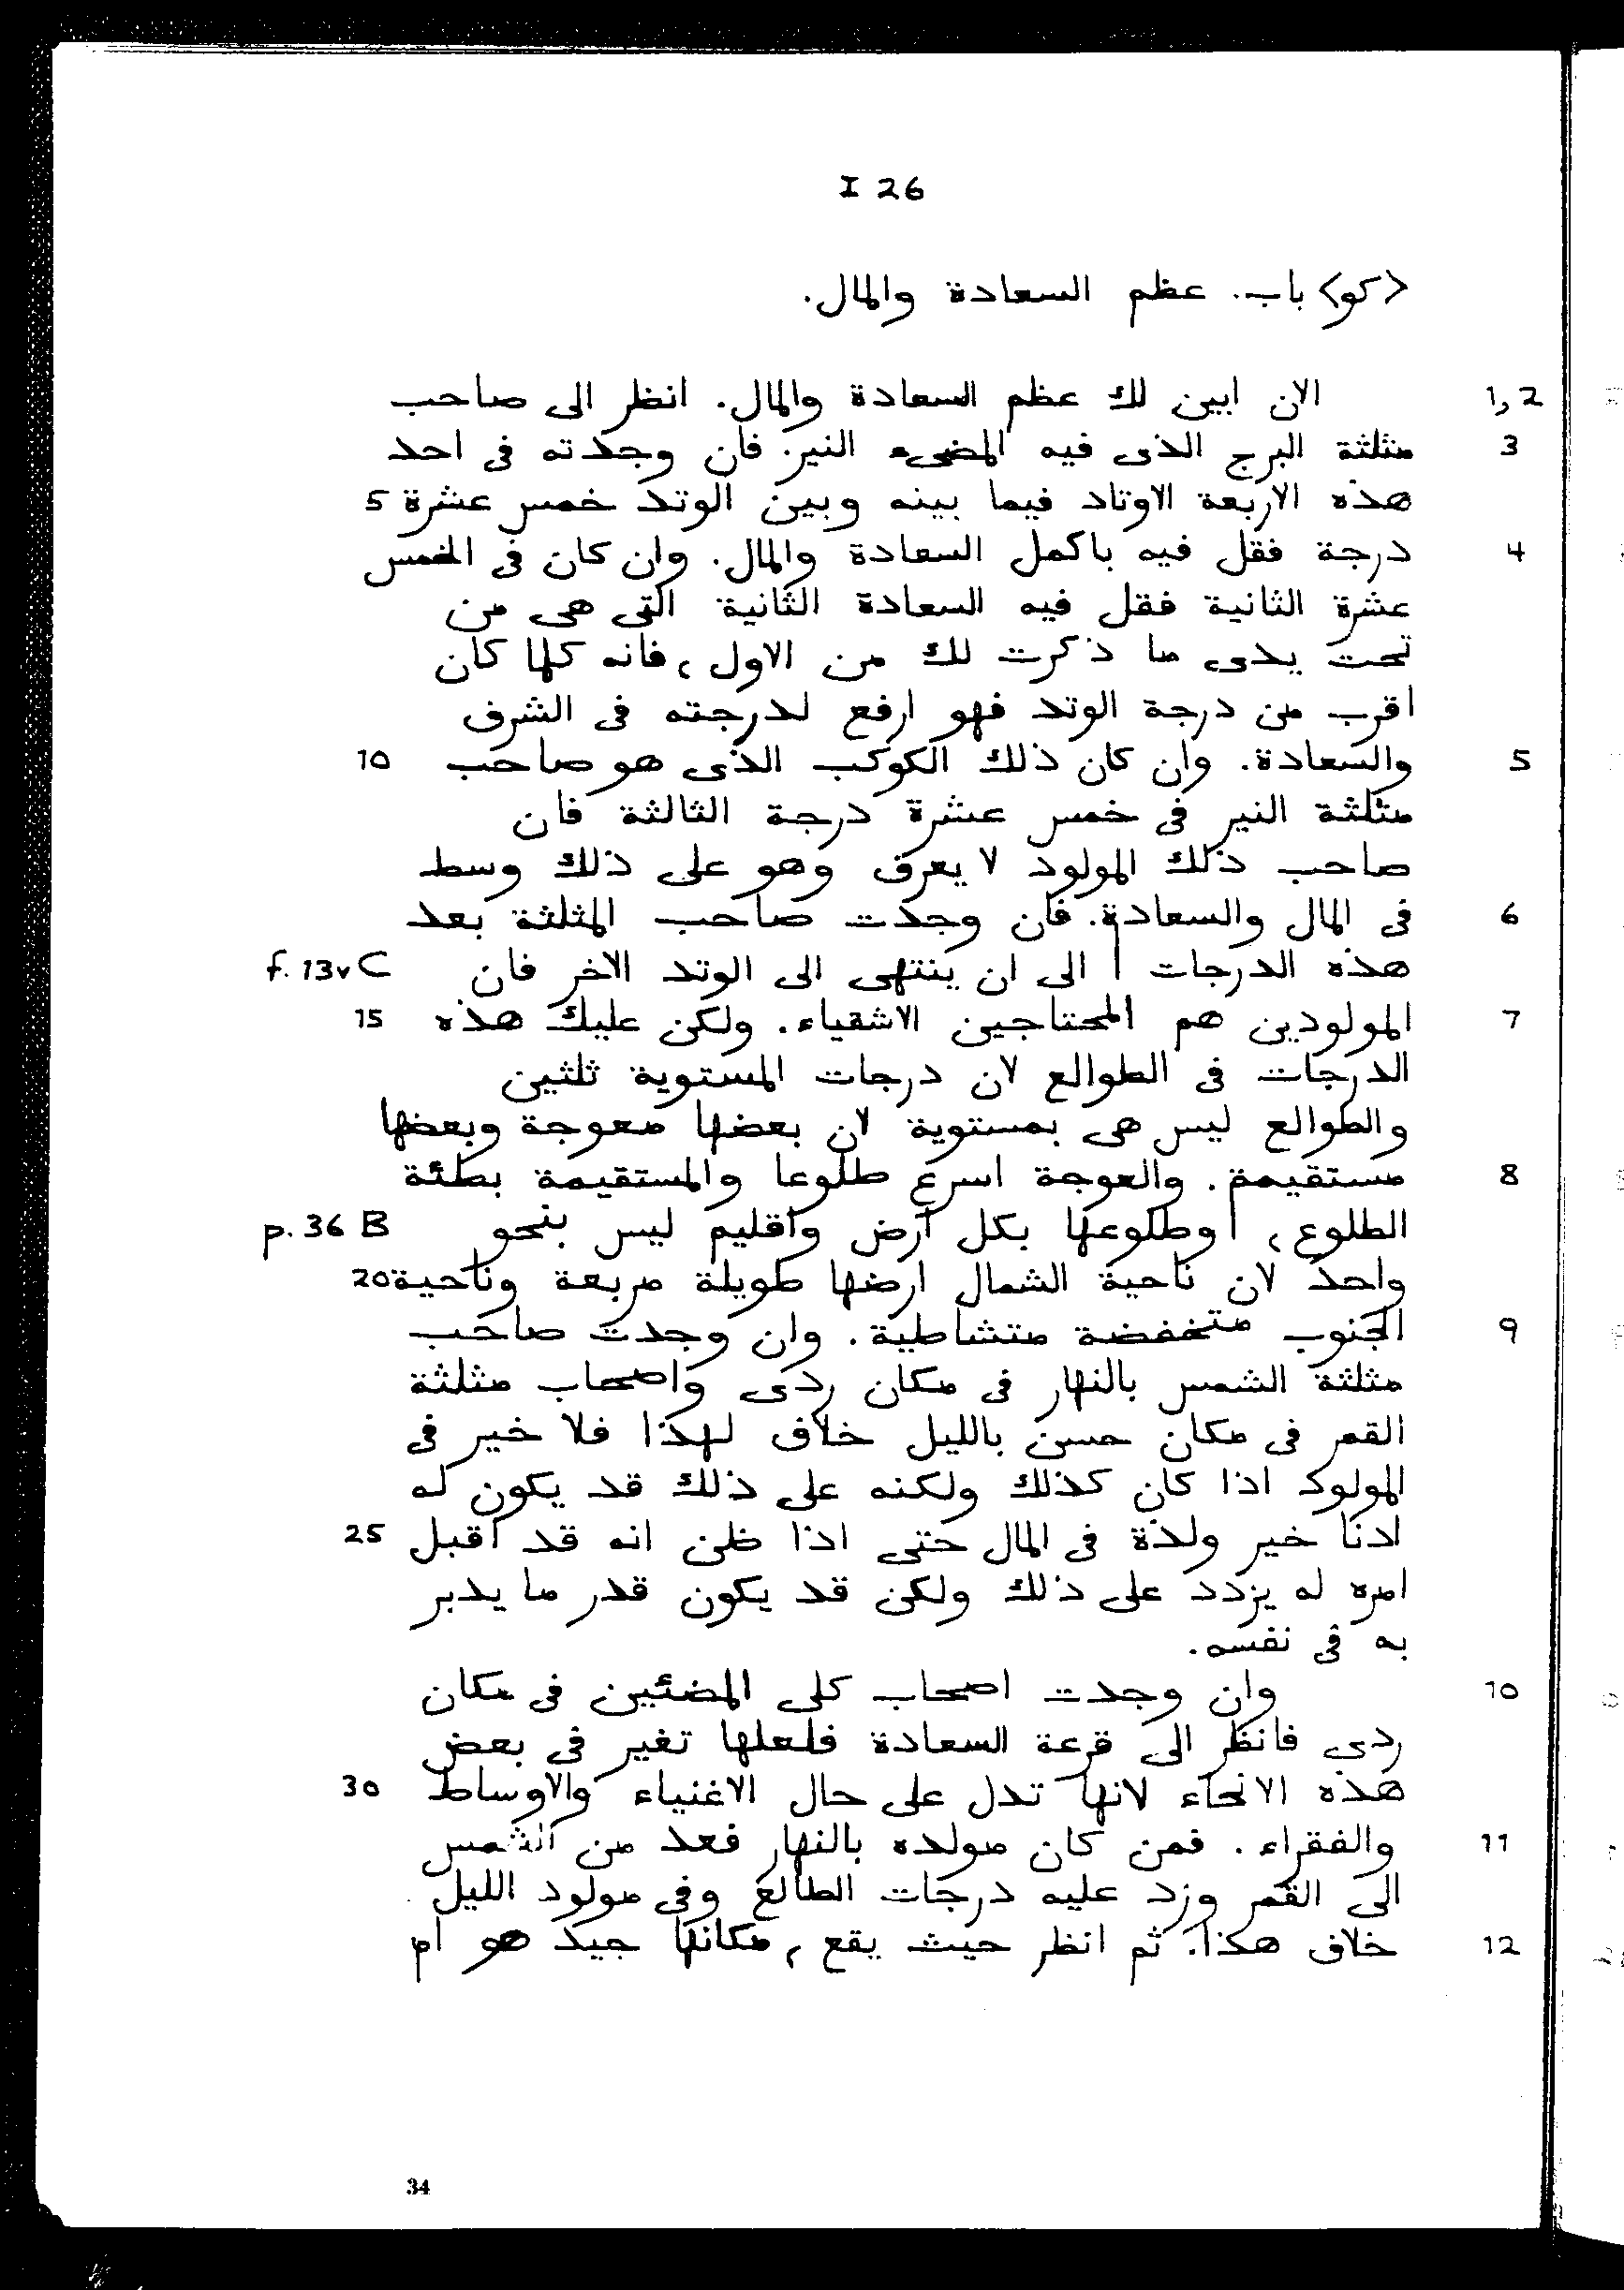 I 26
<كو> باب. عظم السعادة والمال.
1,2 الان ابين لك عظم السعادة والمال. انظر الى صاحب
3 مثلثة البرج الذى فيه المضىء النير. فان وجدته فى احد
هذه الاربعة الاوتاد فيما بينه وبين الوتد خمس عشرة 5
4 درجة فقل فيه باكمل السعادة والمال. وان كان فى الخمس
عشرة الثانية فقل فيه السعادة الثانية التى هى من
تحت يدى ما ذكرت لك من الاول، فانه كلما كان
اقرب من درجة الوتد فهو ارفع لدرجته فى الشرف
5 والسعادة. وان كان ذلك الكوكب الذى هو صاحب 10
مثلثة النير فى خمس عشرة درجة الثالثة فان
صاحب ذلك المولود لا يعرف وهو على ذلك وسط
6 فى المال والسعادة. فان وجدت صاحب المثلثة بعد
هذه الدرجات | الى ان ينتهى الى الوتد الاخر فان f. 13v C
7 المولودين هم المحتاجين الاشقياء. ولكن عليك هذه 15
الدرجات فى الطوالع لان درجات المستوية ثلثين
والطوالع ليس هى بمستوية لان بعضها معوجة وبعضها
8 مستقيمة. والعوجة اسرع طلوعا والمستقيمة بطئة
الطلوع، | وطلوعها بكل ارض واقليم ليس بنحو p. 36 B
واحد لان ناحية الشمال ارضها طويلة مربعة وناحية 20
9 الجنوب متخفضة متشاطية. وان وجدت صاحب
مثلثة الشمس بالنهار فى مكان ردى واصحاب مثلثة
القمر فى مكان حسن بالليل خلاف لهذا فلا خير فى
المولود اذا كان كذلك ولكنه على ذلك قد يكون له
ادنا خير ولذة فى المال حتى اذا ظن انه قد اقبل 25
امره له يزدد على ذلك ولكن قد يكون قدر ما يدبر
به فى نفسه.
10 وان وجدت اصحاب كلى المضئين فى مكان
ردى فانظر الى قرعة السعادة فلعلها تغير فى بعض
هذه الانحاء لانها تدل على حال الاغنياء والاوساط 30
11 والفقراء. فمن كان مولده بالنهار فعد من الشمس
الى القمر وزد عليه درجات الطالع وفى مولود الليل
12 خلاف هكذا. ثم انظر حيث يقع، مكانها جيد هو ام
34